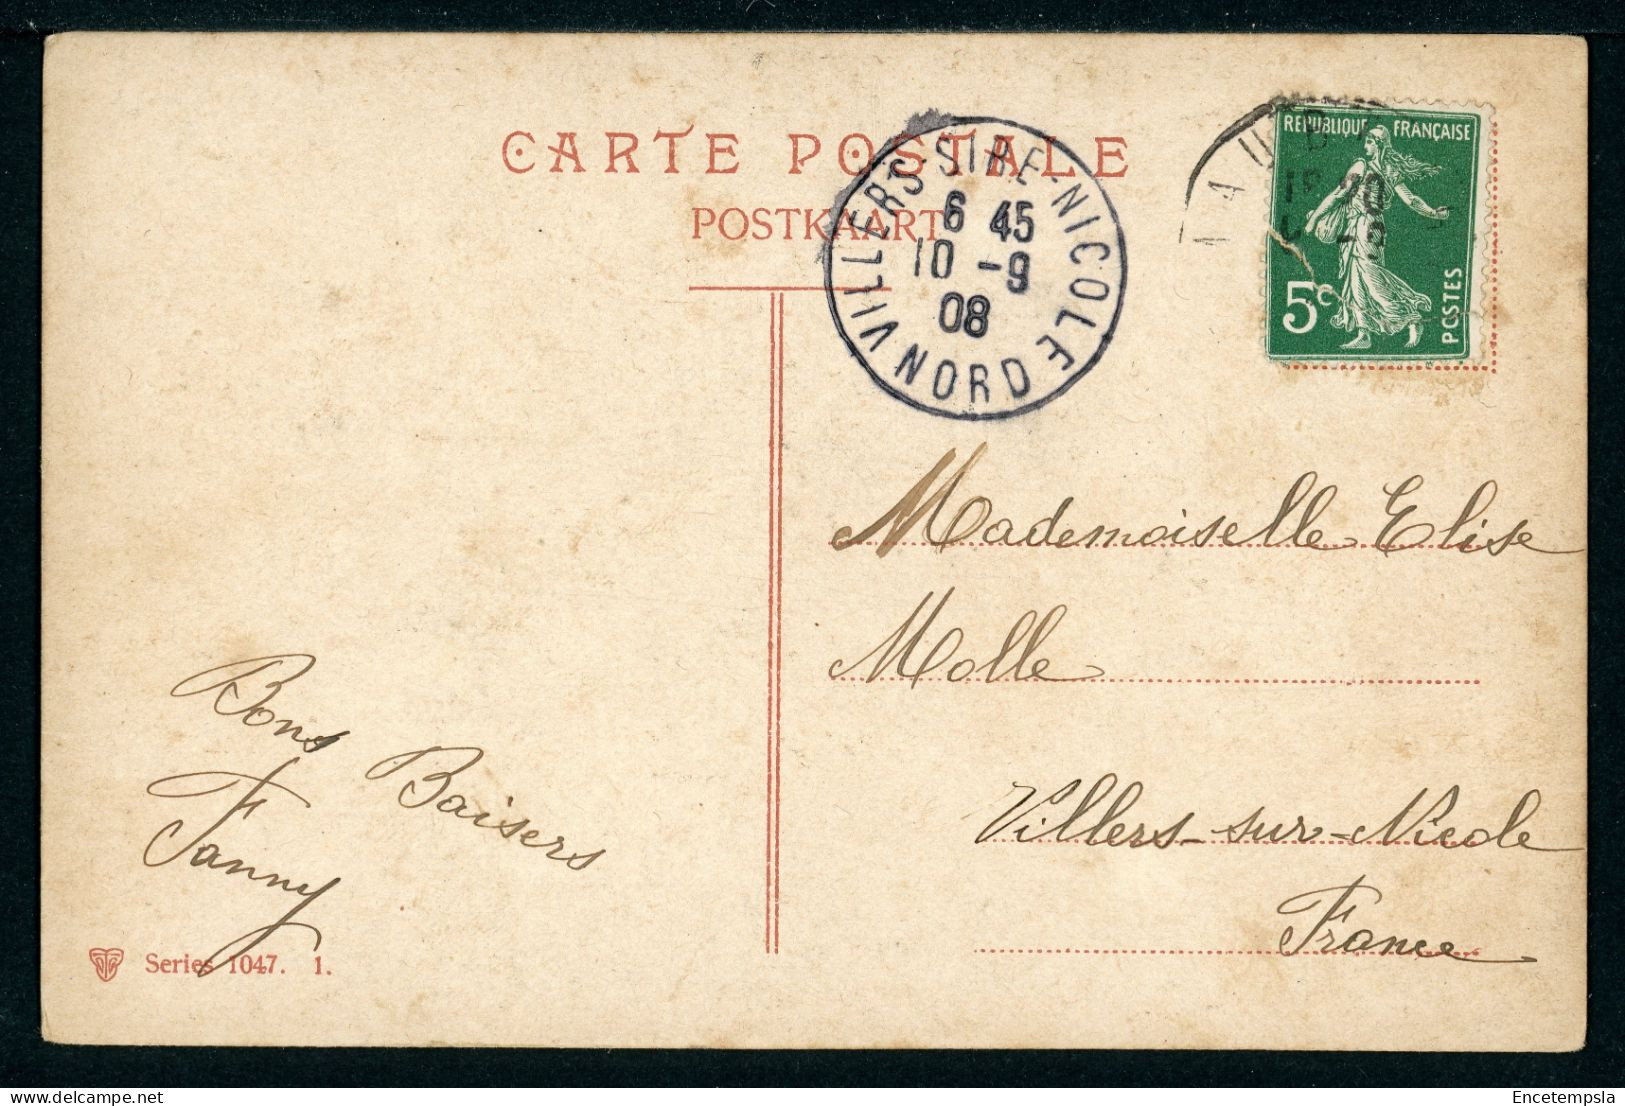 CARTE POSTALE
POSTKAART
VILLERS-SIRE-NICOLE
6 45
10 -9
08
NORD
REPUBLIQUE FRANÇAISE
5c
POSTES
Mademoiselle Elise
Molle
Villers-sur-Nicole
France
Bons Baisers
Fanny
Series 1047. 1.
Encetempsla